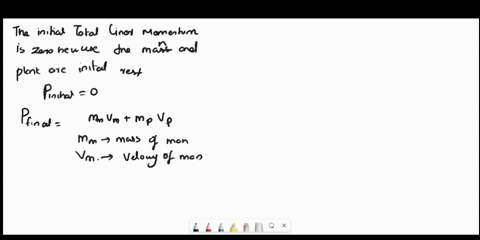 The initial Total Linear Momentum
is zero because the man and
plank are initial rest
Pinitial = 0
Pfinal = mm Vm + mp Vp
mm → mass of man
Vm → Velocity of man